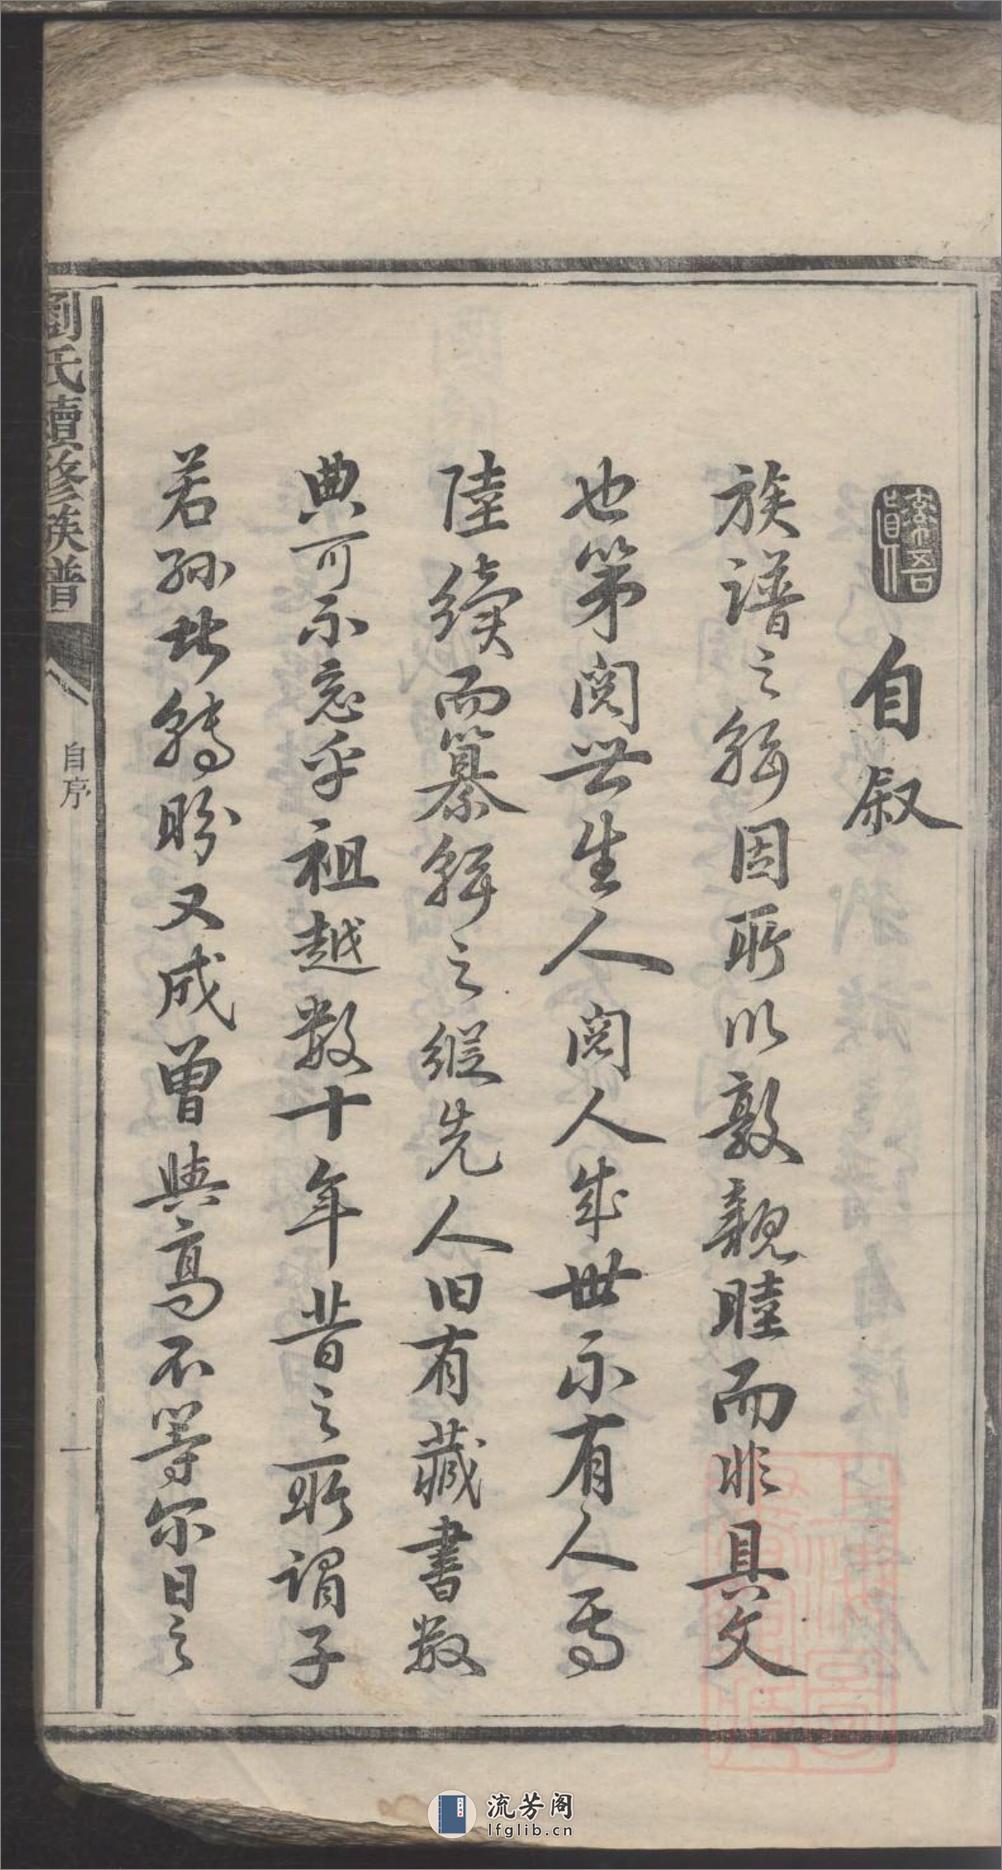 自叙
族谱之辑因所以敦亲睦而非具文
也第阅世生人阅人成世不有人焉
陸續而纂辑之縱先人旧有藏書数
典可不忘乎祖越数十年昔之所谓子
若孙皆轉盼又成曾與高不等尔日之
劉氏續修族譜
自序
一
流芳阁
lfglib.cn